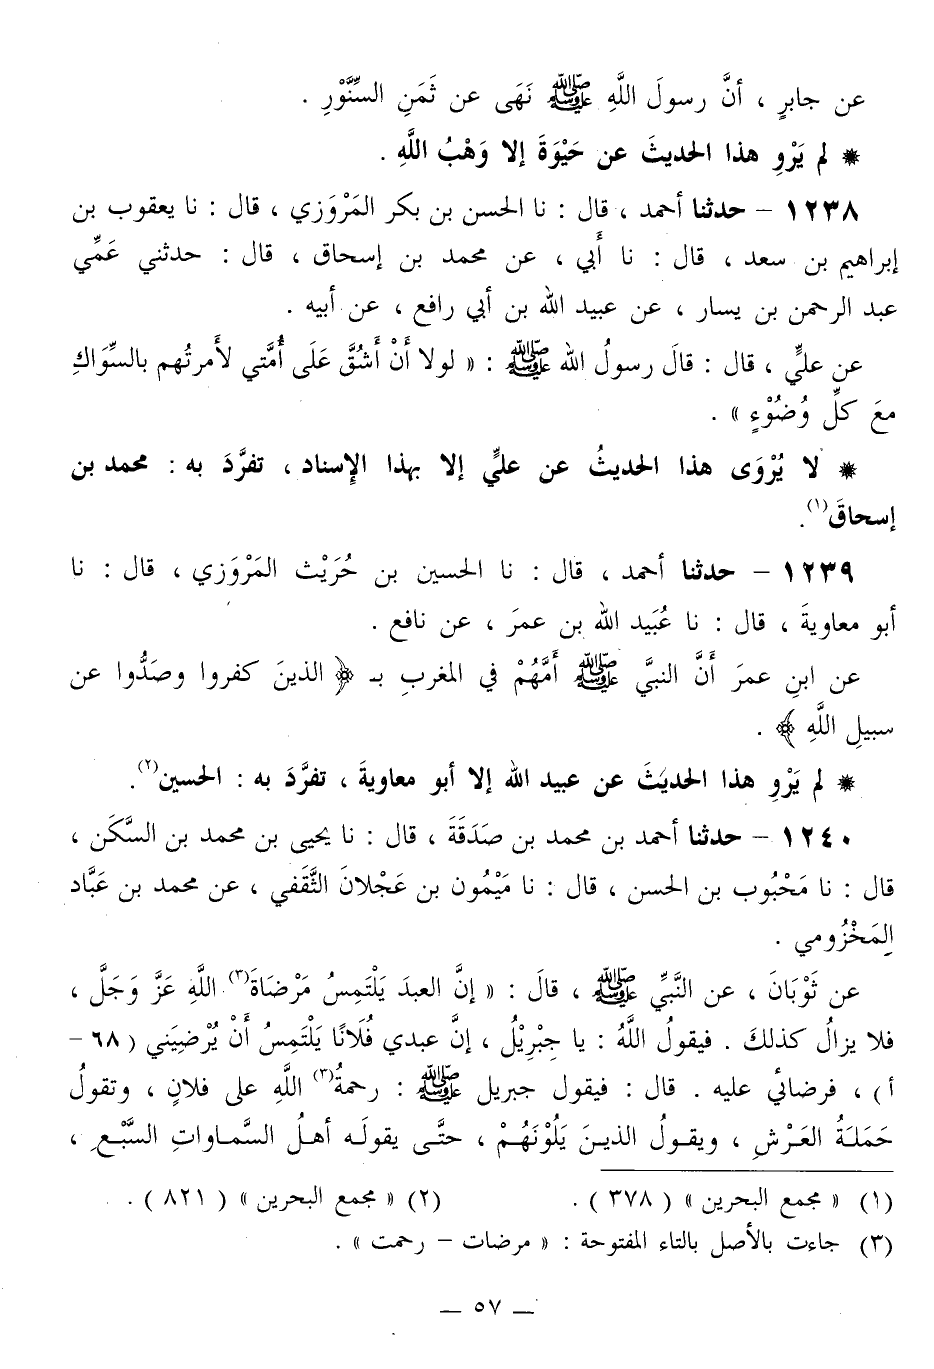 عن جابرٍ ، أنَّ رسولَ اللَّهِ ﷺ نَهَى عن ثَمَنِ السِّنَّوْرِ .
* لم يَرْوِ هذا الحديثَ عن حَيْوَةَ إلا وَهْبُ اللَّهِ .
١٢٣٨ – حدثنا أحمد ، قال : نا الحسن بن بكر المَرْوَزي ، قال : نا يعقوب بن
إبراهيم بن سعد ، قال : نا أَبي ، عن محمد بن إسحاق ، قال : حدثني عَمِّي
عبد الرحمن بن يسار ، عن عبيد الله بن أبي رافع ، عن أبيه .
عن عليٍّ ، قال : قالَ رسولُ الله ﷺ : « لولا أَنْ أَشُقَّ عَلَى أُمَّتي لأَمرتُهم بالسِّوَاكِ
معَ كلِّ وُضُوْءٍ » .
* لا يُرْوَى هذا الحديثُ عن عليٍّ إلا بهذا الإِسناد ، تفرَّدَ به : محمد بن
إسحاقَ(١).
١٢٣٩ – حدثنا أحمد ، قال : نا الحسين بن حُرَيْث المَرْوَزي ، قال : نا
أبو معاويةَ ، قال : نا عُبَيد الله بن عمرَ ، عن نافع .
عن ابنِ عمرَ أنَّ النبيَّ ﷺ أَمَّهُمْ في المغربِ بـ ﴿ الذينَ كفروا وصَدُّوا عن
سبيلِ اللَّهِ ﴾ .
* لم يَرْوِ هذا الحديثَ عن عبيد الله إلا أبو معاويةَ ، تفرَّدَ به : الحسين(٢).
١٢٤٠ – حدثنا أحمد بن محمد بن صَدَقَةَ ، قال : نا يحيى بن محمد بن السَّكَن ،
قال : نا مَحْبُوب بن الحسن ، قال : نا مَيْمُون بن عَجْلانَ الثَّقَفي ، عن محمد بن عَبَّاد
المَخْزُومي .
عن ثَوْبَانَ ، عن النَّبيِّ ﷺ ، قالَ : « إنَّ العبدَ يَلْتَمِسُ مَرْضَاةَ(٣) اللَّهِ عَزَّ وَجَلَّ ،
فلا يزالُ كذلكَ . فيقولُ اللَّهُ : يا جِبْرِيْلُ ، إنَّ عبدي فُلَانًا يَلْتَمِسُ أَنْ يُرْضِيَني ( ٦٨ –
أ ) ، فرضائي عليه . قال : فيقول جبريل ﷺ : رحمةُ(٣) اللَّهِ على فلانٍ ، وتقولُ
حَمَلَةُ العَرْشِ ، ويقولُ الذينَ يَلُوْنَهُمْ ، حتَّى يقولَه أهلُ السَّماواتِ السَّبْعِ ،
(١) « مجمع البحرين » ( ٣٧٨ ) . (٢) « مجمع البحرين » ( ٨٢١ ) .
(٣) جاءت بالأصل بالتاء المفتوحة : « مرضات – رحمت » .
— ٥٧ —